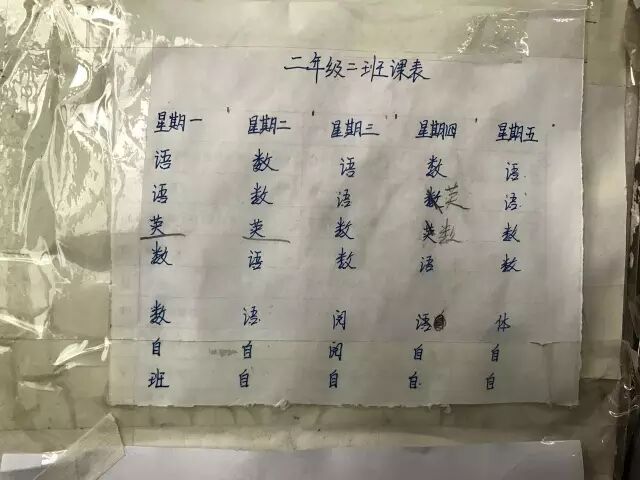 二年级二班课表
星期一 星期二 星期三 星期四 星期五
语 数 语 数 语
语 数 语 数英 语
英 英 数 英数 数
数 语 数 语 数
数 语 阅 语自 体
自 自 阅 自 自
班 自 自 自 自